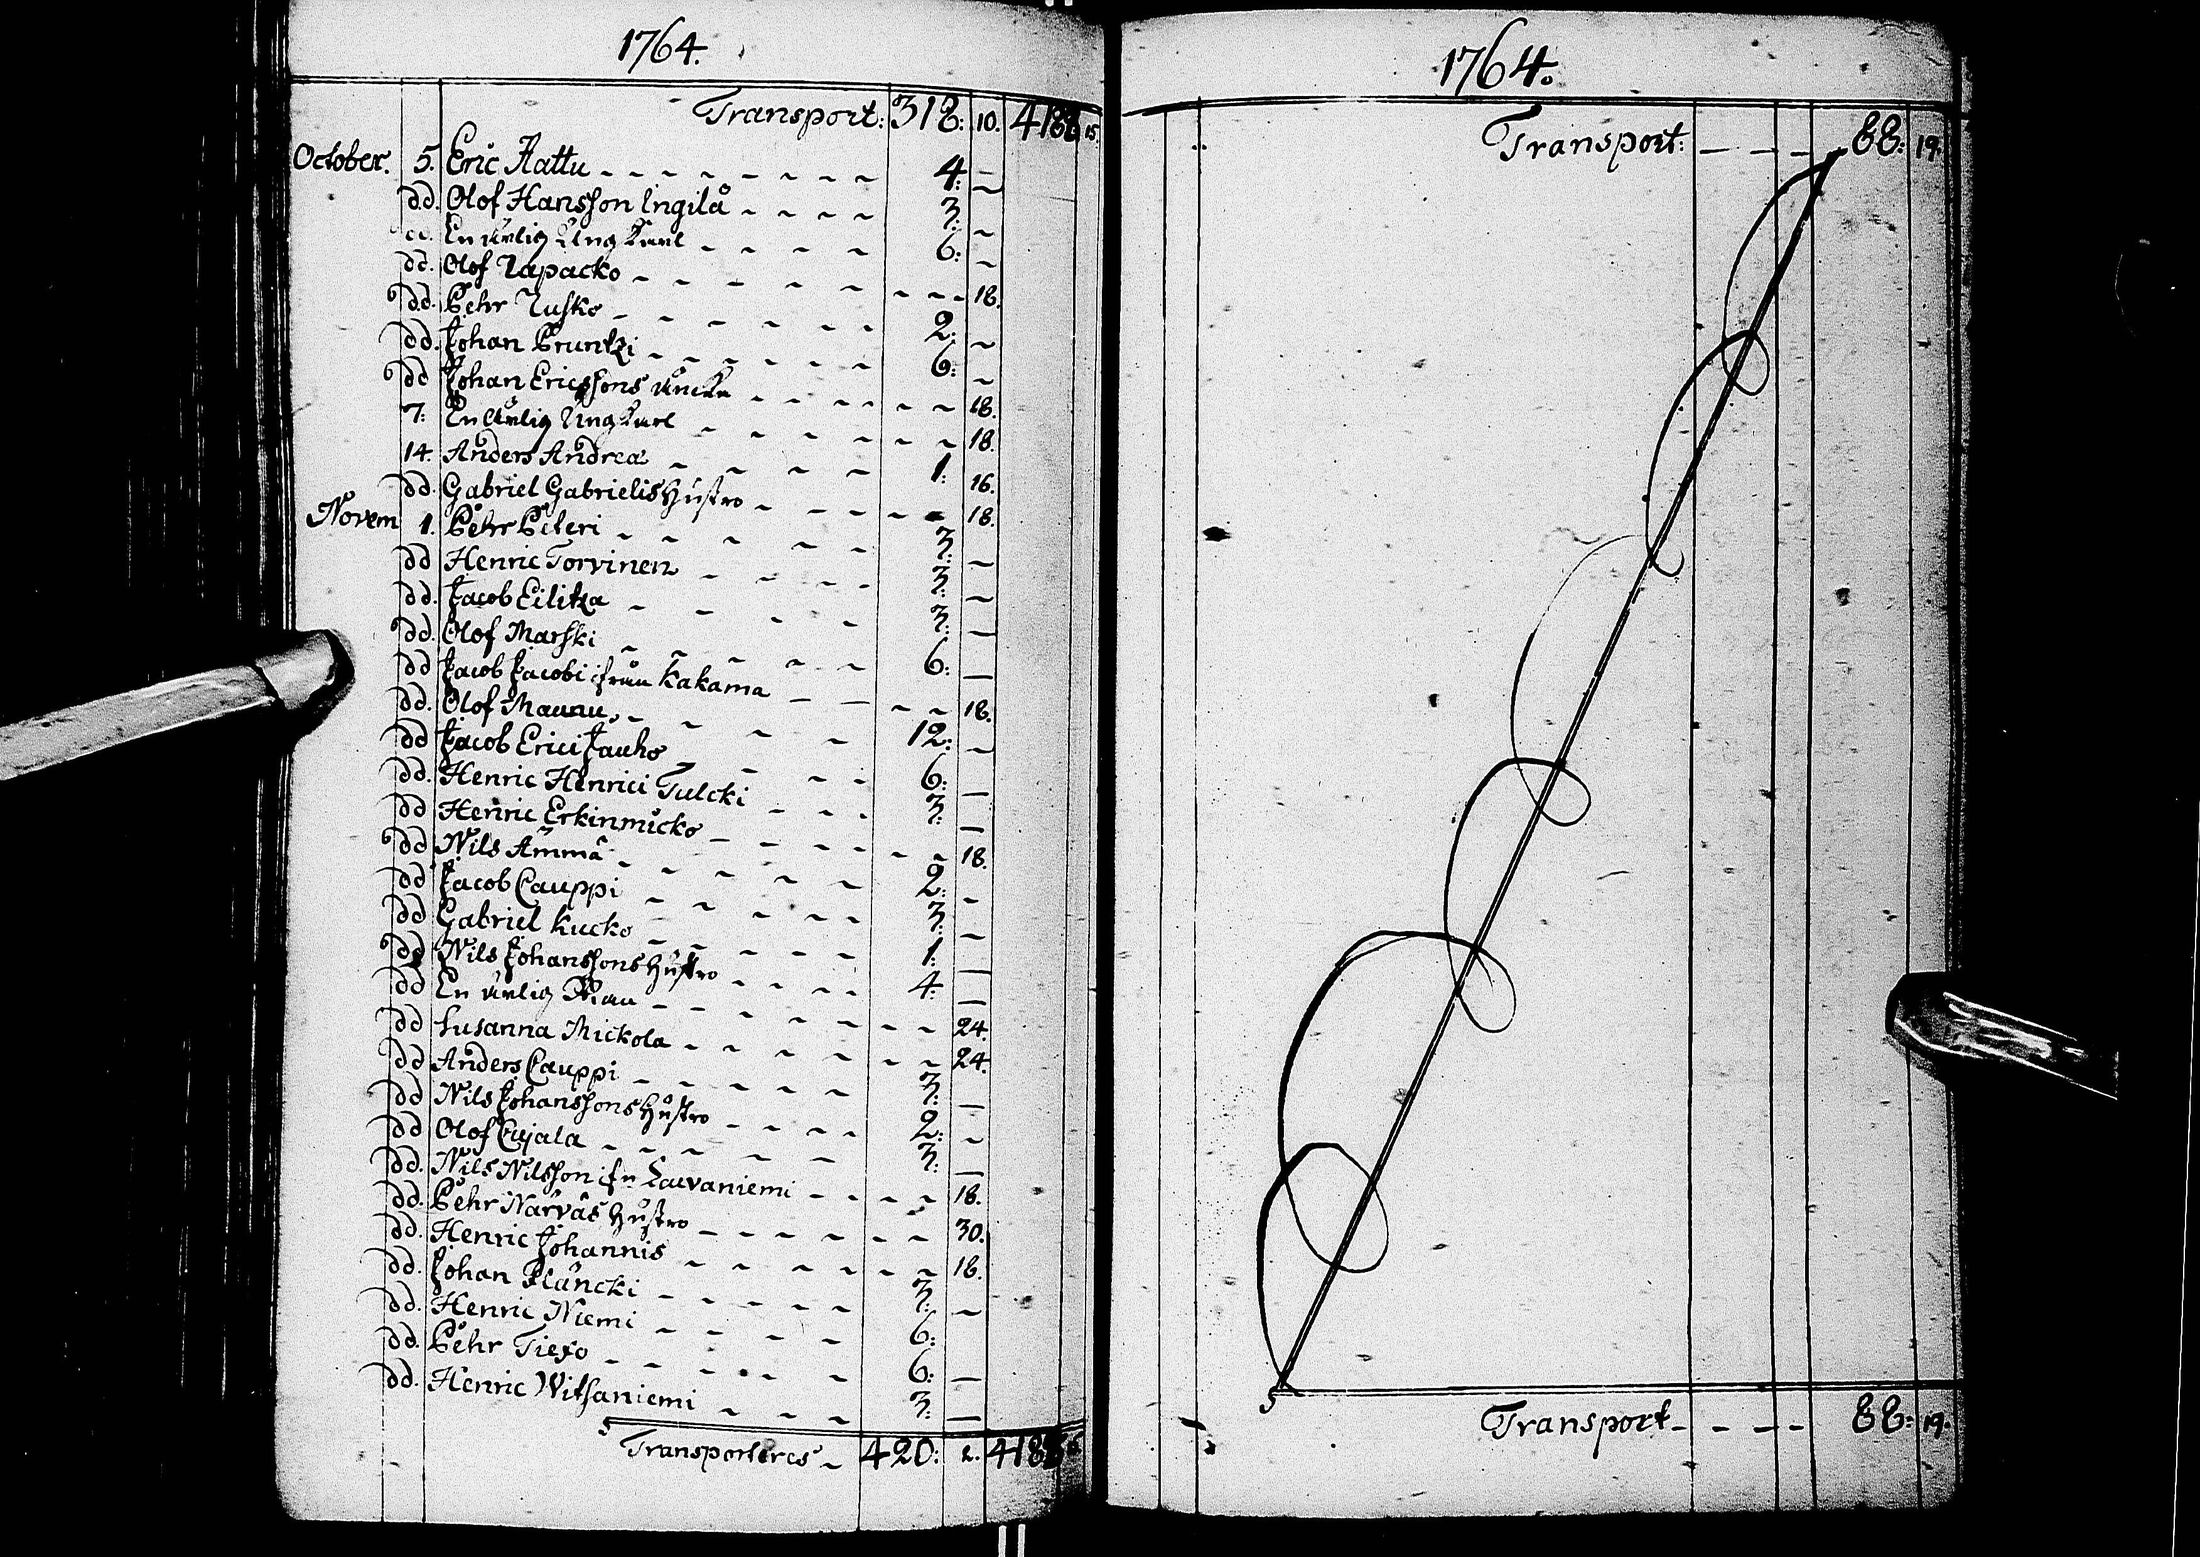 1764.
Transport: 318: 10. 4188 15.
October. 5. Eric Aattu 4: —
dd. Olof Hansson Ingilä 3: —
dd. En ärlig Ung Karl 6: —
dd. Olof Lapacko 18.
dd. Pehr Lusko 2: —
dd. Johan Pruntzi 6: —
dd Johan Ericssons änka 18.
7: En ärlig Ung Karl 18.
14. Anders Andreæ 1: 16.
dd. Gabriel Gabrielis Hustro 18.
Novem 1. Pehr Piteri 3: —
dd Henric Torvinen 3: —
dd. Jacob Eilitza 3: —
dd. Olof Marski 6: —
dd Jacob Jacobi ifrån Kakama 18.
dd. Olof Maunu 12: —
dd Jacob Erici Jauho 6: —
dd. Henric Henrici Tulcki 3: —
dd Henric Erkinmicko 18.
dd Nils Ämmä 2: —
dd Jacob Cauppi 3: —
dd Gabriel Kucko 1: —
dd Nils Johanssons Hustro 4: —
dd En ärlig Man 24.
dd Susanna Mickola 24.
dd Anders Cauppi 3: —
dd Nils Johanssons Hustro 2: —
dd Olof Cujala 3: —
dd. Nils Nilsson ifn Laivaniemi 18.
dd. Pehr Närväs Hustro 30.
dd. Henric Johannis 18.
dd. Johan Plancki 3: —
dd. Henric Niemi 6:
dd. Pehr Tiexo 6: —
dd. Henric Witsaniemi 3: —
Transporteres 420: 2. 4188
1764.
Transport: 88: 19.
Transport 88: 19.